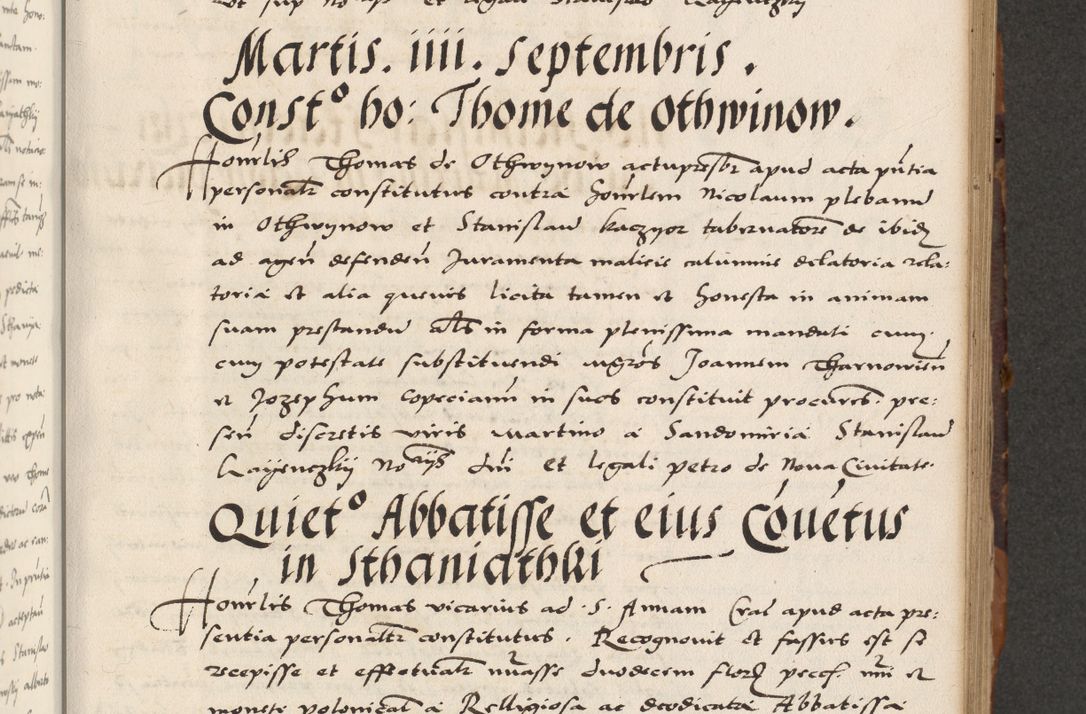 Martis. iiii. Septembris.
Constº ho: Thome de Othwinow.
Honrlis Thomas de Othwynow actupresbr apud acta pntia
personalr constitutus contra honrlem Nicolaum plebanu
in Othwynow et Stanislau kaczyor tabernatore de ibid
ad agen defenden Juramenta malicie calumnie delatoria rela:
toria et alia quevis licita tamen et honesta in animam
suam prestandu als in forma plenissima mandati cum
cum potestate substituendi mgros Joannem Tharnowien
et Jozephum copecianu in suos constituit procures. pre:
sen discretis viris martino a Sandomiria Stanislau
Kayenczkij Norijs dni et legali petro de Nova Civitate.
Quietº Abbatisse et eius Cõuẽtus
in Sthaniathki
Honrlis Thomas vicarius ad .S. Annam Crac apud acta pre:
sentia personalr constitutus. Recognovit et fassus est se
recepisse et effectualr masse duodecem flor pecc. mni et
monete polonical a Relligiosa ac deodicata Abbatissa